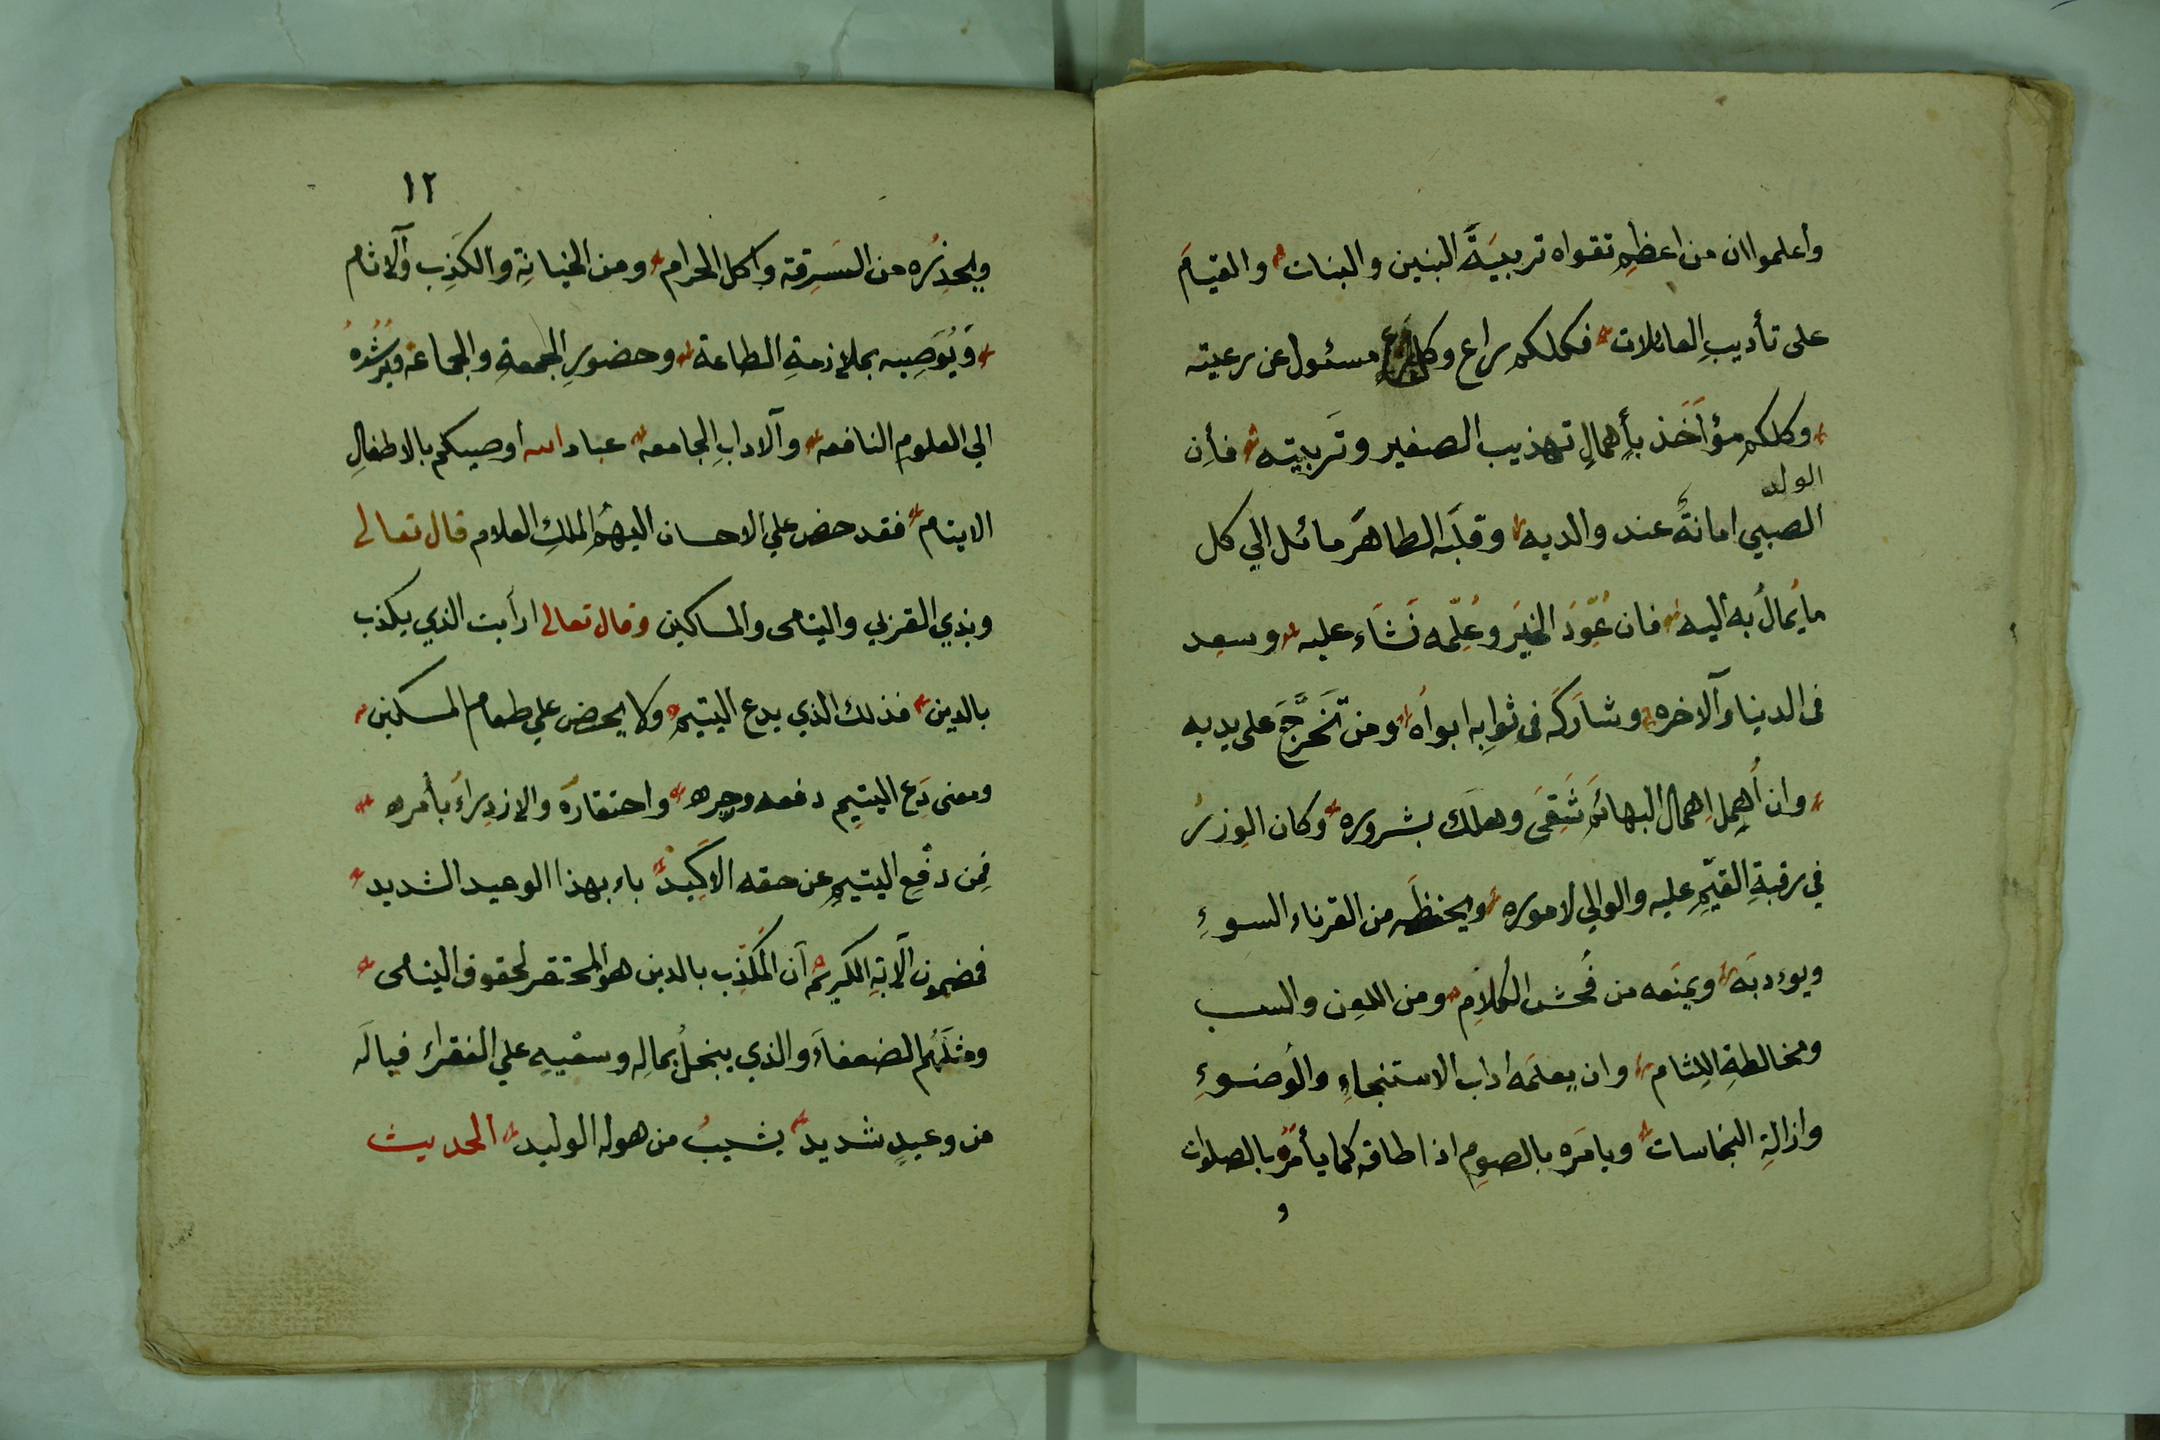 وأعلموا ان من اعظمِ تقواه تربيَةَ البنين والبنات والقيامَ
على تأديبِ العائلات فكلكم راع وكل مسئول عن رعيته
وكلكم مؤاَخَذ بأِهمالِ تهذيب الصغير وتَربيته فأِن
الولد
الصبي امانةٌ عند والديه وقلَبه الطاهَر مائل الي كل
ما يُمالُ به اليه فان عُوِّدَ الخيَر وعُلِّمه نَشَاء عليه وسعِد
في الدنيا والآخره وشاركَه في ثوابِه ابواُه ومن تَخَرَّجَ على يديه
وان أُهمِل اِهمالَ البهائم شَقِيَ وهلَك بشروره وكان الوِزرُ
في رقبةِ القيّمِ عليه والوالي لاموره ويحفظَه من القرناء السوءِ
ويوءدبَه ويمنَعه من فُحشِ الكلاِم ومن اللعِن والسب
ومخالطةِ اللِئام وان يعلمَه اداب الاستنجاءِ والوُضوءِ
وازالةِ النجاسات ويامَره بالصوِم اذا طاقه كما يأمُره بالصلوات
و
١٢
ويحذِرُه من السَرِقة واكل الحرام ومن الخيانةِ والكَذِب والآثام
وَيُوَصِيه بملازمةِ الطاعة وحضورِ الجمعةِ والجماعة ويُرشُده
الي العلومِ النافعه والآدابِ الجامعه عباد الله اوصيكم بالاطفالِ
الايتام فقد حض علي الاحسان اليهُم الملكِ العلام قال تعالى
وبذي القربي واليتامى والمساكين وقال تعالى ارأيت الذي يكذب
بالدين فذلك الذي يدع اليتيم ولا يحض علي طعام المسكين
ومعنى دَع اليتيِم دفعه وجره واحتقارَه والازدِراءُ بأمره
فمِن دفْعِ اليتيمِ عن حقه الاكَيِد باء بهذا الوعيد الشديد
فمضمون الآيةِ الكريمُه أن المُكَذِب بالدين هو المحتقر لحقوق اليتامى
ومثلَهُم الضعفاَء والذي يبخلُ بمالِه وسعْيِهِ علي الفقراء فيا لَه
من وعيدٍ شديد يشيبُ من هوله الوليد الحديث